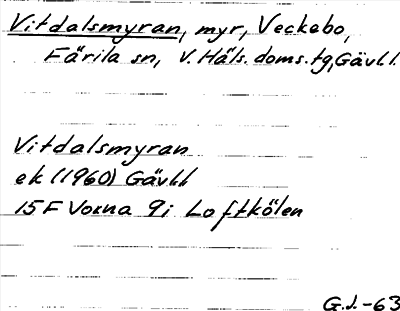 Vitdalsmyran, myr, Veckebo,
Färila sn, V. Häls. doms. tg, Gävl.l.
Vitdalsmyran
ek (1960) Gävl.l
15 F Voxna 9i Loftkölen
G.J.-63